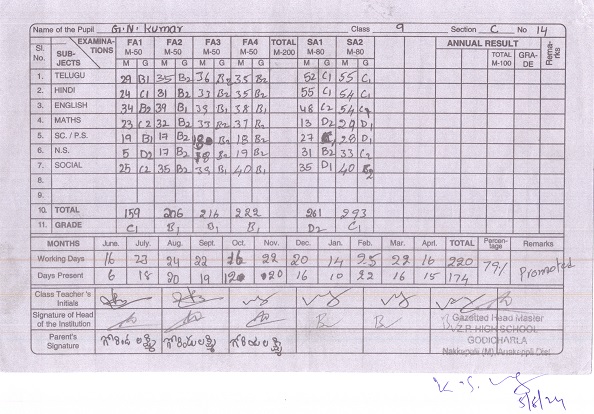 Name of the Pupil G.N. kumar Class 9 Section C No 14
Sl. No. EXAMINATIONS SUBJECTS FA1 M-50 FA2 M-50 FA3 M-50 FA4 M-50 TOTAL M-200 SA1 M-80 SA2 M-80 ANNUAL RESULT TOTAL M-100 GRADE Remarks
M G M G M G M G M G M G
1. TELUGU 29 B1 35 B2 36 B2 35 B2 52 C1 55 C1
2. HINDI 24 C1 31 B2 33 B2 35 B2 55 C1 54 C1
3. ENGLISH 34 B2 39 B1 38 B1 38 B1 48 C2 54
4. MATHS 23 C2 32 B2 B2 37 B2 13 D2 D1
5. SC. / P.S. 19 B1 17 B2 B2 18 B2 27 28 D1
6. N.S. 5 D2 17 B2 18 B2 19 B2 31 B2 33 C2
7. SOCIAL 25 C2 35 B2 39 B1 40 B1 35 D1 40
8.
9.
10. TOTAL 159 206 216 222 261 293
11. GRADE C1 B1 B1 B1 D2 C1
MONTHS June. July. Aug. Sept. Oct. Nov. Dec. Jan. Feb. Mar. Aprl. TOTAL Percentage Remarks
Working Days 16 23 24 22 16 22 20 14 25 22 16 220 79% Promoted
Days Present 6 18 20 19 12 20 16 10 22 16 15 174
Class Teacher's Initials
Signature of Head of the Institution
Gazetted Head Master
Z.P. HIGH SCHOOL
GODICHARLA
Nakkapalli (M), Anakapalli Dist
Parent's Signature
5/6/24